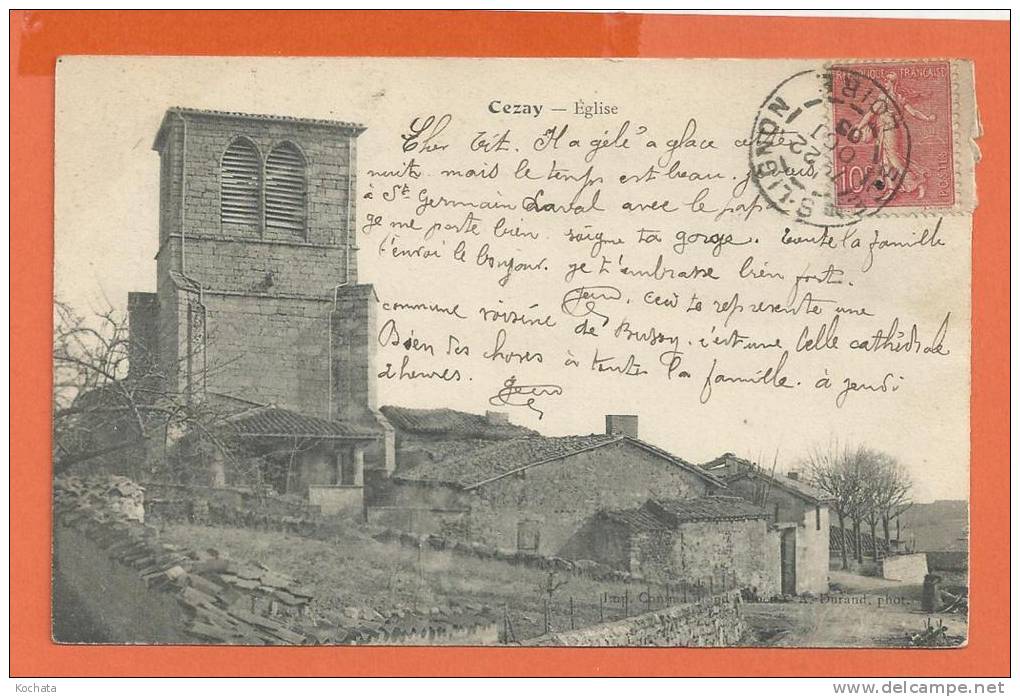 Cezay — Église
Cher Tit. Il a gêlé à glace cette
nuit. mais le temps est beau. je suis
à St Germain Laval avec le papa
je me porte bien. soigne ta gorge. toute la famille
t'envoi le bonjour. je t'embrasse bien fort.
Jean. Ceci te represente une
commune voisine de Bussy. c'est une belle cathédrale
Bien des choses à toute la famille. à jeudi
2 heures. Jean
REPUBLIQUE FRANÇAISE
10c
POSTES
LIGNON
LOIRE
22
OCT
A. Durand, phot.
Kochata
http://www.delcampe.net